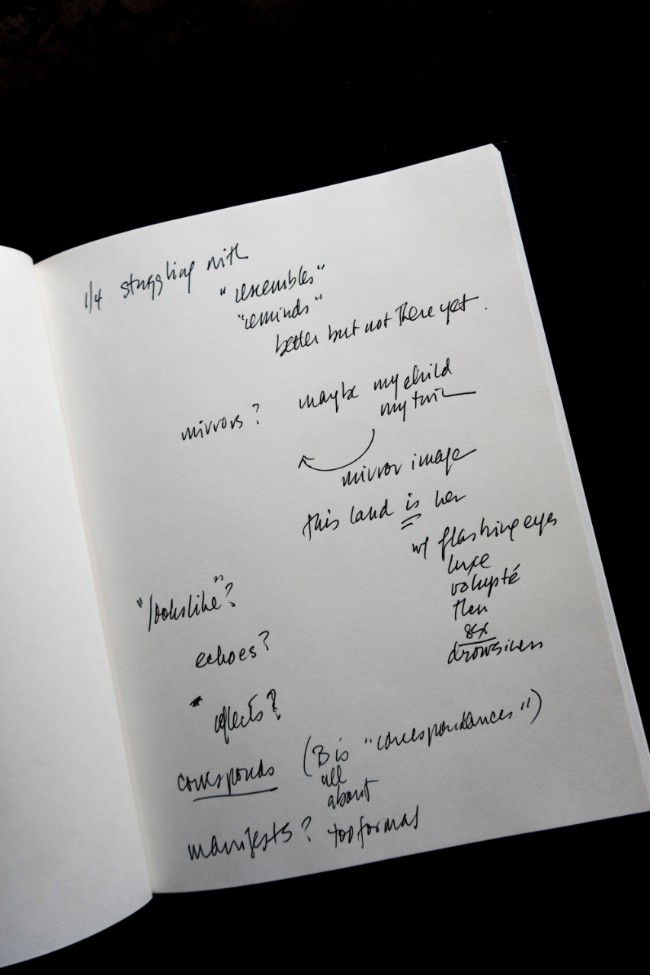 1/4 struggling with
"resembles"
"reminds"
better but not there yet.
mirrors? maybe my child
my twin
mirror image
this land is her
w/ flashing eyes
luxe
volupté
then
sex
drowsiness
"looks like"?
echoes?
reflects?
corresponds (B is "correspondances")
all
about
manifests? too formal